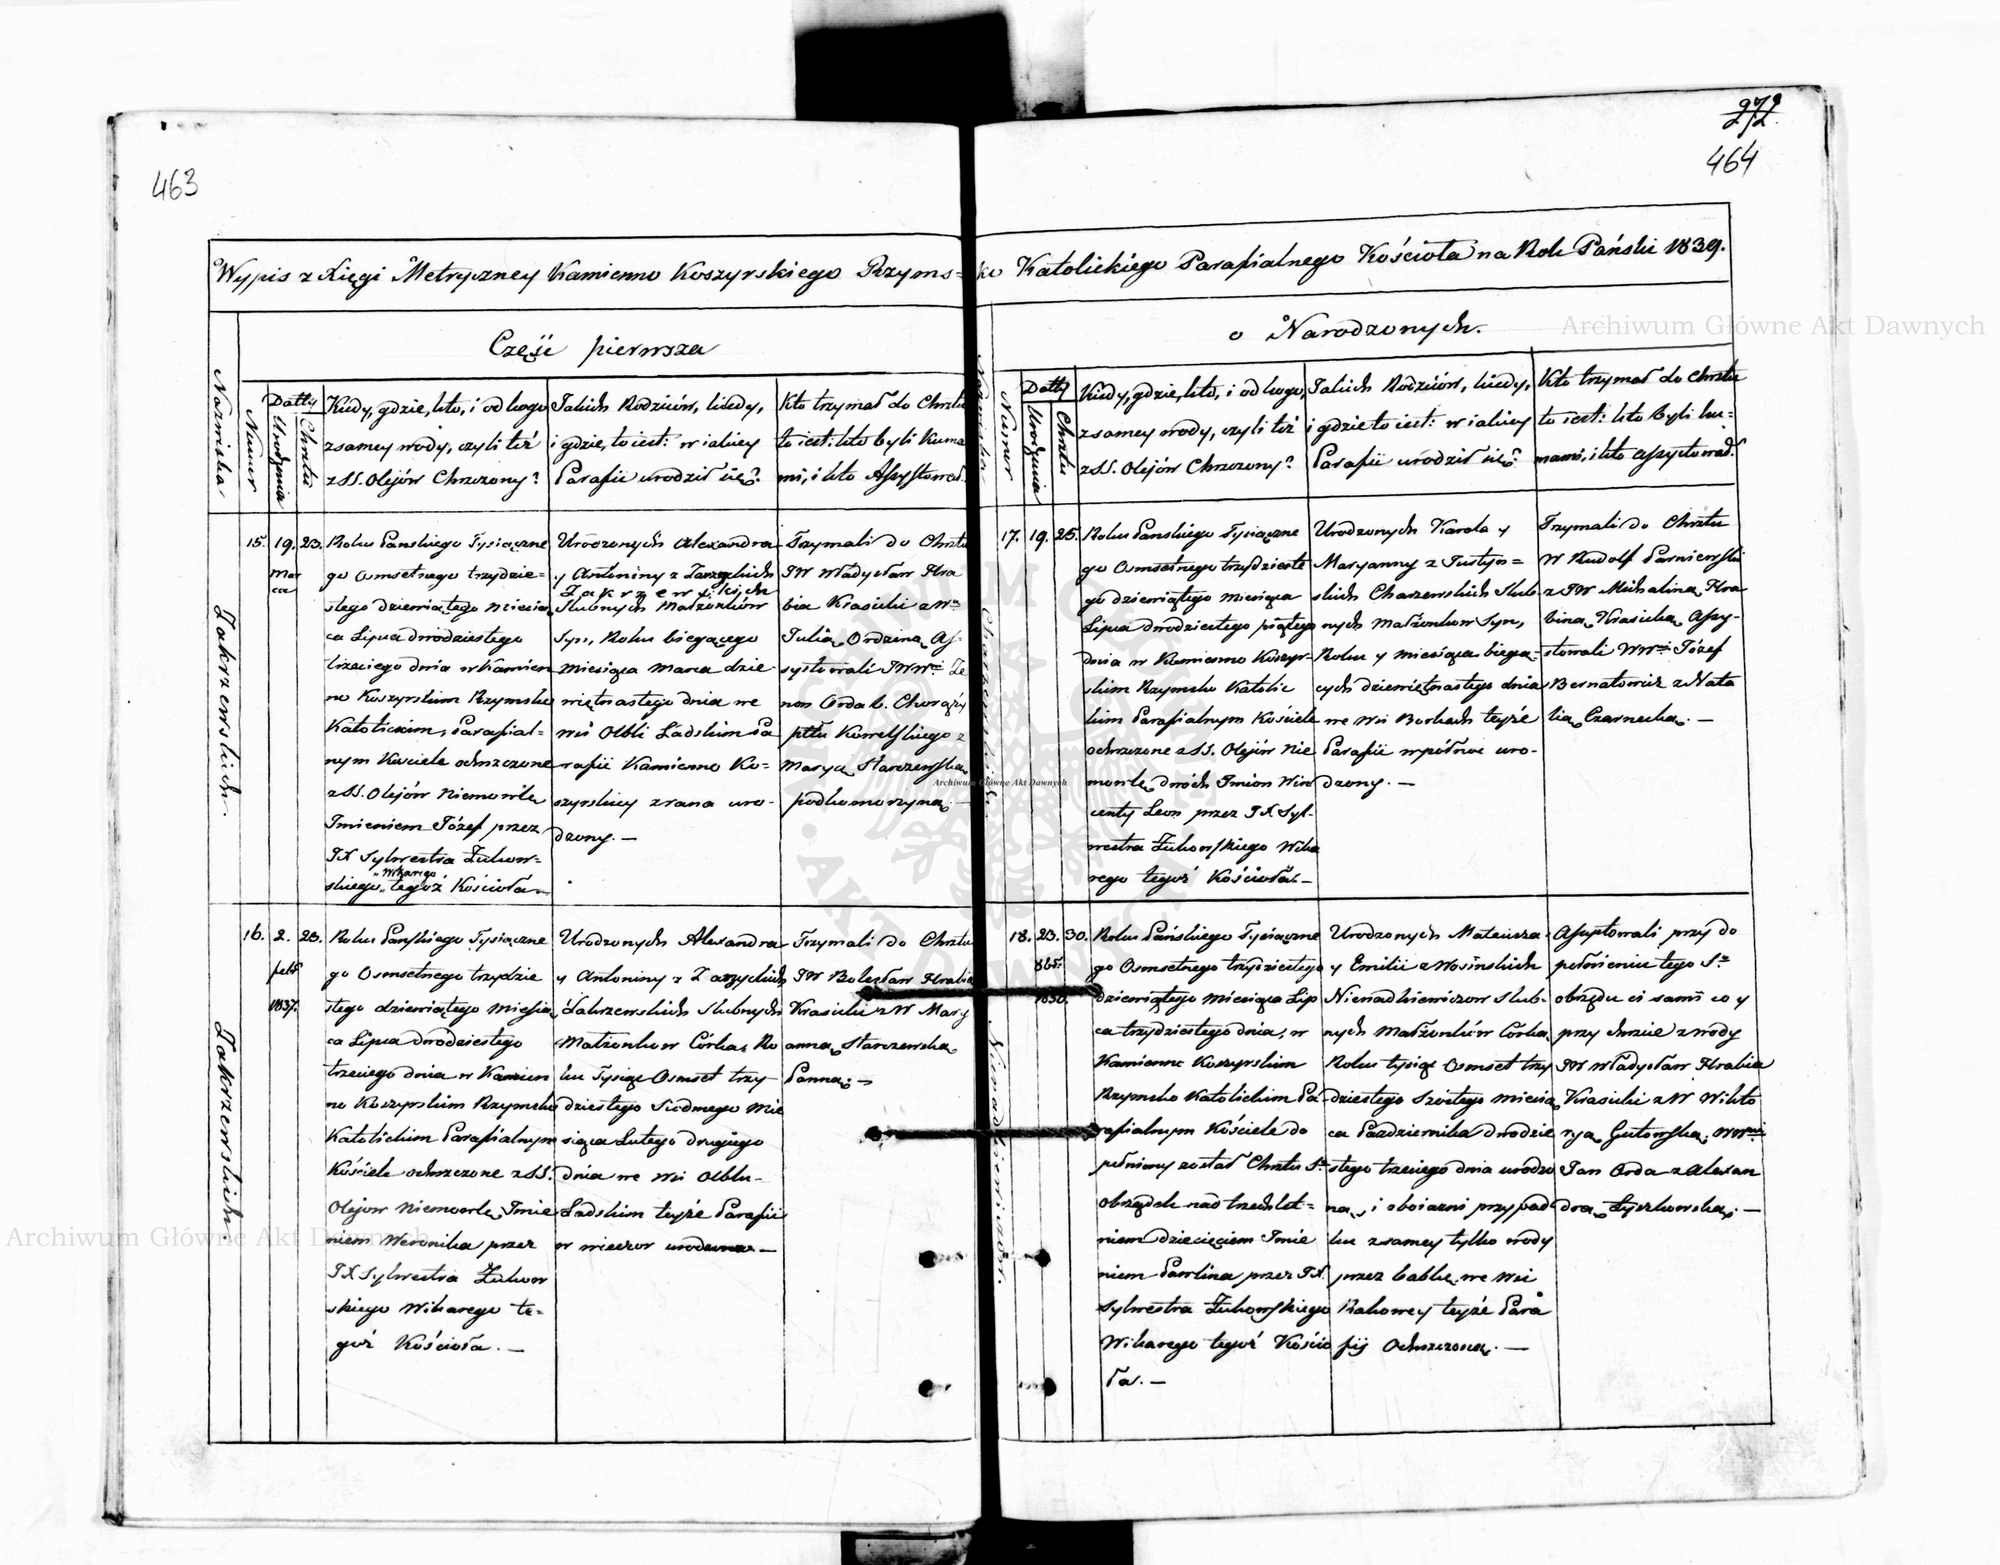 463
272
464
Wypis z Xięgi Metryczney Kamienno Koszyrskiego Rzyms=ko Katolickiego Parafialnego Kościoła na Rok Pański 1839.
Część pierwsza
o Narodzonych.
Nazwiska
Numer
Datty
Urodzenia
Chrztu
Kiedy, gdzie, kto, i od kogo
z samey wody, czyli też
z SS. Olejów Chrzczony?
Jakich Rodziców, kiedy,
i gdzie, to iest: w iakiey
Parafii urodził się?
Kto trzymał do Chrztu
to iest: kto byli Kuma
mi, i kto Assystował.
Zakrzewskich.
15.
19.
Mar
ca
23.
Roku Panskiego Tysiączne
go osmsetnego trzydzie=
stego dziewiątego Miesią
ca Lipca dwódziestego
trzeciego dnia w Kamien
no Koszyrskim Rzymsko
Katolickim, Parafial=
nym Kościele ochrzczone
z SS. Olejów Niemowle
Imieniem Józef przez
JX Sylwestra Żukow=
"Wikarego
skiego" tegoż Kościoła.—
Urodzonych Alexandra
y Antoniny z Zarzyckich
Zakrzewskich
Slubnych Małżonków
Syn, Roku biegącego
Miesiąca Marca dzie=
więtnastego dnia we
wsi Olbli Ladskim Pa
rafii Kamienno Ko=
szyrskiey z rana uro=
dzony.—
Trzymali do Chrztu
JW Władysław Hra
bia Krasicki z Wą
Julią Ordziną, As=
systowali JWWni Ze
non Orda b. Chorąży
pttu Kowelskiego z
Maryą Starzewską
podkomorzyną.—
Zakrzewskich.
16.
2.
febr
1837.
23.
Roku Panskiego Tysiączne
go Osmsetnego trzydzie
stego dziewiątego Miesią
ca Lipca dwódziestego
trzeciego dnia w Kamien
no Koszyrskim Rzymsko
Katolickim Parafialnym
Kościele ochrzczone z SS.
Olejow Niemowle Imie
niem Weronika przez
JX Sylwestra Żukow
skiego Wikarego te=
goż Kościoła.—
Urodzonych Alexandra
y Antoniny z Zarzyckich
Zakrzewskich Slubnych
Matżonkow Córka, Ro
ku Tysiąc Osmset trzy
dziestego Siodmego Mie
siąca Lutego drugiego
dnia we wsi Olblu-
Ladskim teyże Parafii
w wieczor urodzona—
Trzymali do Chrztu
JW Bolesław Hrabia
Krasicki z W Mary
anną Starzewską
Panną.—
Nazwiska
Numer
Datty
Urodzenia
Chrztu
Kiedy, gdzie, kto, i od kogo,
z samey wody, czyli też
z SS. Olejów Chrzczony?
Jakich Rodziców, kiedy,
i gdzie to iest: w iakiey
Parafii urodził się?
Kto trzymał do Chrztu
to iest: kto byli ku=
mami, i kto assystował.
17.
19.
25.
Roku Panskiego Tysiączne
go Osmsetnego trzydzieste
go dziewiątego miesiąca
Lipca dwodziestego piątego
dnia w Kamienno Koszyr=
skim Rzymsko Katolic
kim Parafialnym Kościele
ochrzczone z SS. Olejów Nie
mowlę dwóch Imion Win
centy Leon przez JX Syl=
westra Żukowskiego Wika
rego tegoż Kościoła.—
Urodzonych Karola y
Maryanny z Justyn=
skich Charzewskich Slub=
nych Małżonkow Syn,
Roku y miesiąca biega=
cych dziewiętnastego dnia
we Wsi Borkach teyże
Parafii wpółnoc uro-
dzony.—
Trzymali do Chrztu
W Rudolf Parniewski
z JW Michaliną Hra
biną Krasicką, assy-
stowali WWni Józef
Bernatowicz z Nata
lią Czarnecką.—
Nienadkiewiczów.
18.
23.
8br.
1836.
30.
Roku Pańskiego Tysiączne
go Osmsetnego trzydziestego
dziewiątego Miesiąca Lip
ca trzydziestego dnia, w
Kamienno Koszyrskim
Rzymsko Katolickim Pa-
rafialnym Kościele do
pełniony został Chrztu St
obrządek nad trzechlet=
niem dziecięciem Imie
niem Paulina przez JX.
Sylwestra Żukowskiego
Wikarego tegoż Kościo
ła.—
Urodzonych Mateusza
y Emilii z Wosinskich
Nienadkiewiczow Slub-
nych Małżonków Córka,
Roku tysiąc Osmset trzy
dziestego Szóstego Miesią
ca Pazdziernika dwódzie
stego trzeciego dnia urodzo
na, i oboiazni przypad
ku z samey tylko wody
przez babkę we wsi
Rakowey teyże Para
fij Ochrzczona.—
Assystowali przy do
pełnieniu tego St
obrzędu ci sami co y
przy chrzcie z wody
JW Władysław Hrabia
Krasicki z W Wikto
ryą Gutowską, WWni
Jan Orda z Alexan
drą Łyszkowską.—
Archiwum Główne Akt Dawnych
Archiwum Główne Akt Dawnych
Archiwum Główne Akt Dawnych